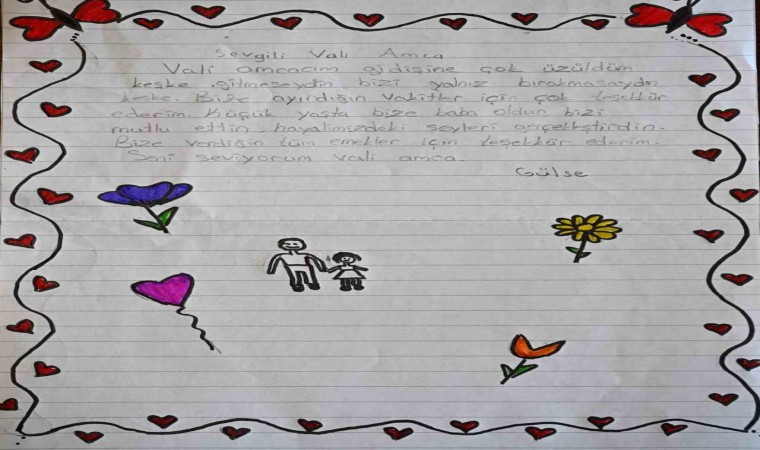 Sevgili Vali Amca
Vali amcacım gidişine çok üzüldüm
keşke gitmeseydin bizi yalnız bırakmasaydın
keşke. Bize ayırdığın vakitler için çok teşekkür
ederim. Küçük yaşta bize baba oldun bizi
mutlu ettin hayalimizdeki şeyleri gerçekleştirdin.
Bize verdiğin tüm emekler için teşekkür ederim.
Seni seviyorum vali amca.
Gülse